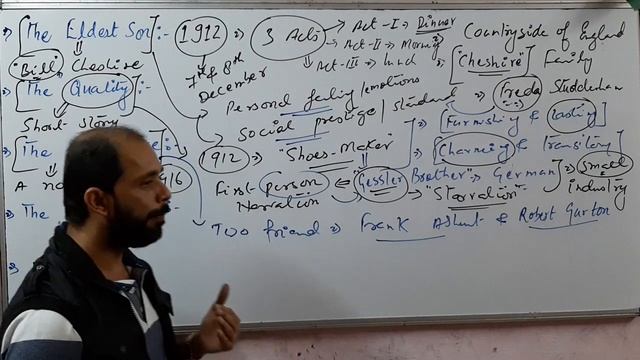 [The Eldest Son]:- 1912 ⇒ 3 Acts → Act-I: Dinner
→ Act-II → Morning
→ Act-III → Lunch
Countryside of England
["Cheshire"] Family
"Bill" Cheshire
7th & 8th December
⇒ [The Quality]:-
Personal feeling/emotions
Freda Studdenham
Social prestige/standard
[Furnishing & lasting]
Short story
1912 ⇒ "Shoes-Maker"
[Charming & transitory]
⇒ [The
A no 16
First person Narration ⇐ Gessler Brother" ⇒ German
→ "Starvation"
Small industry
⇒ [The
Two friend ⇒ Frank & Robert Garton